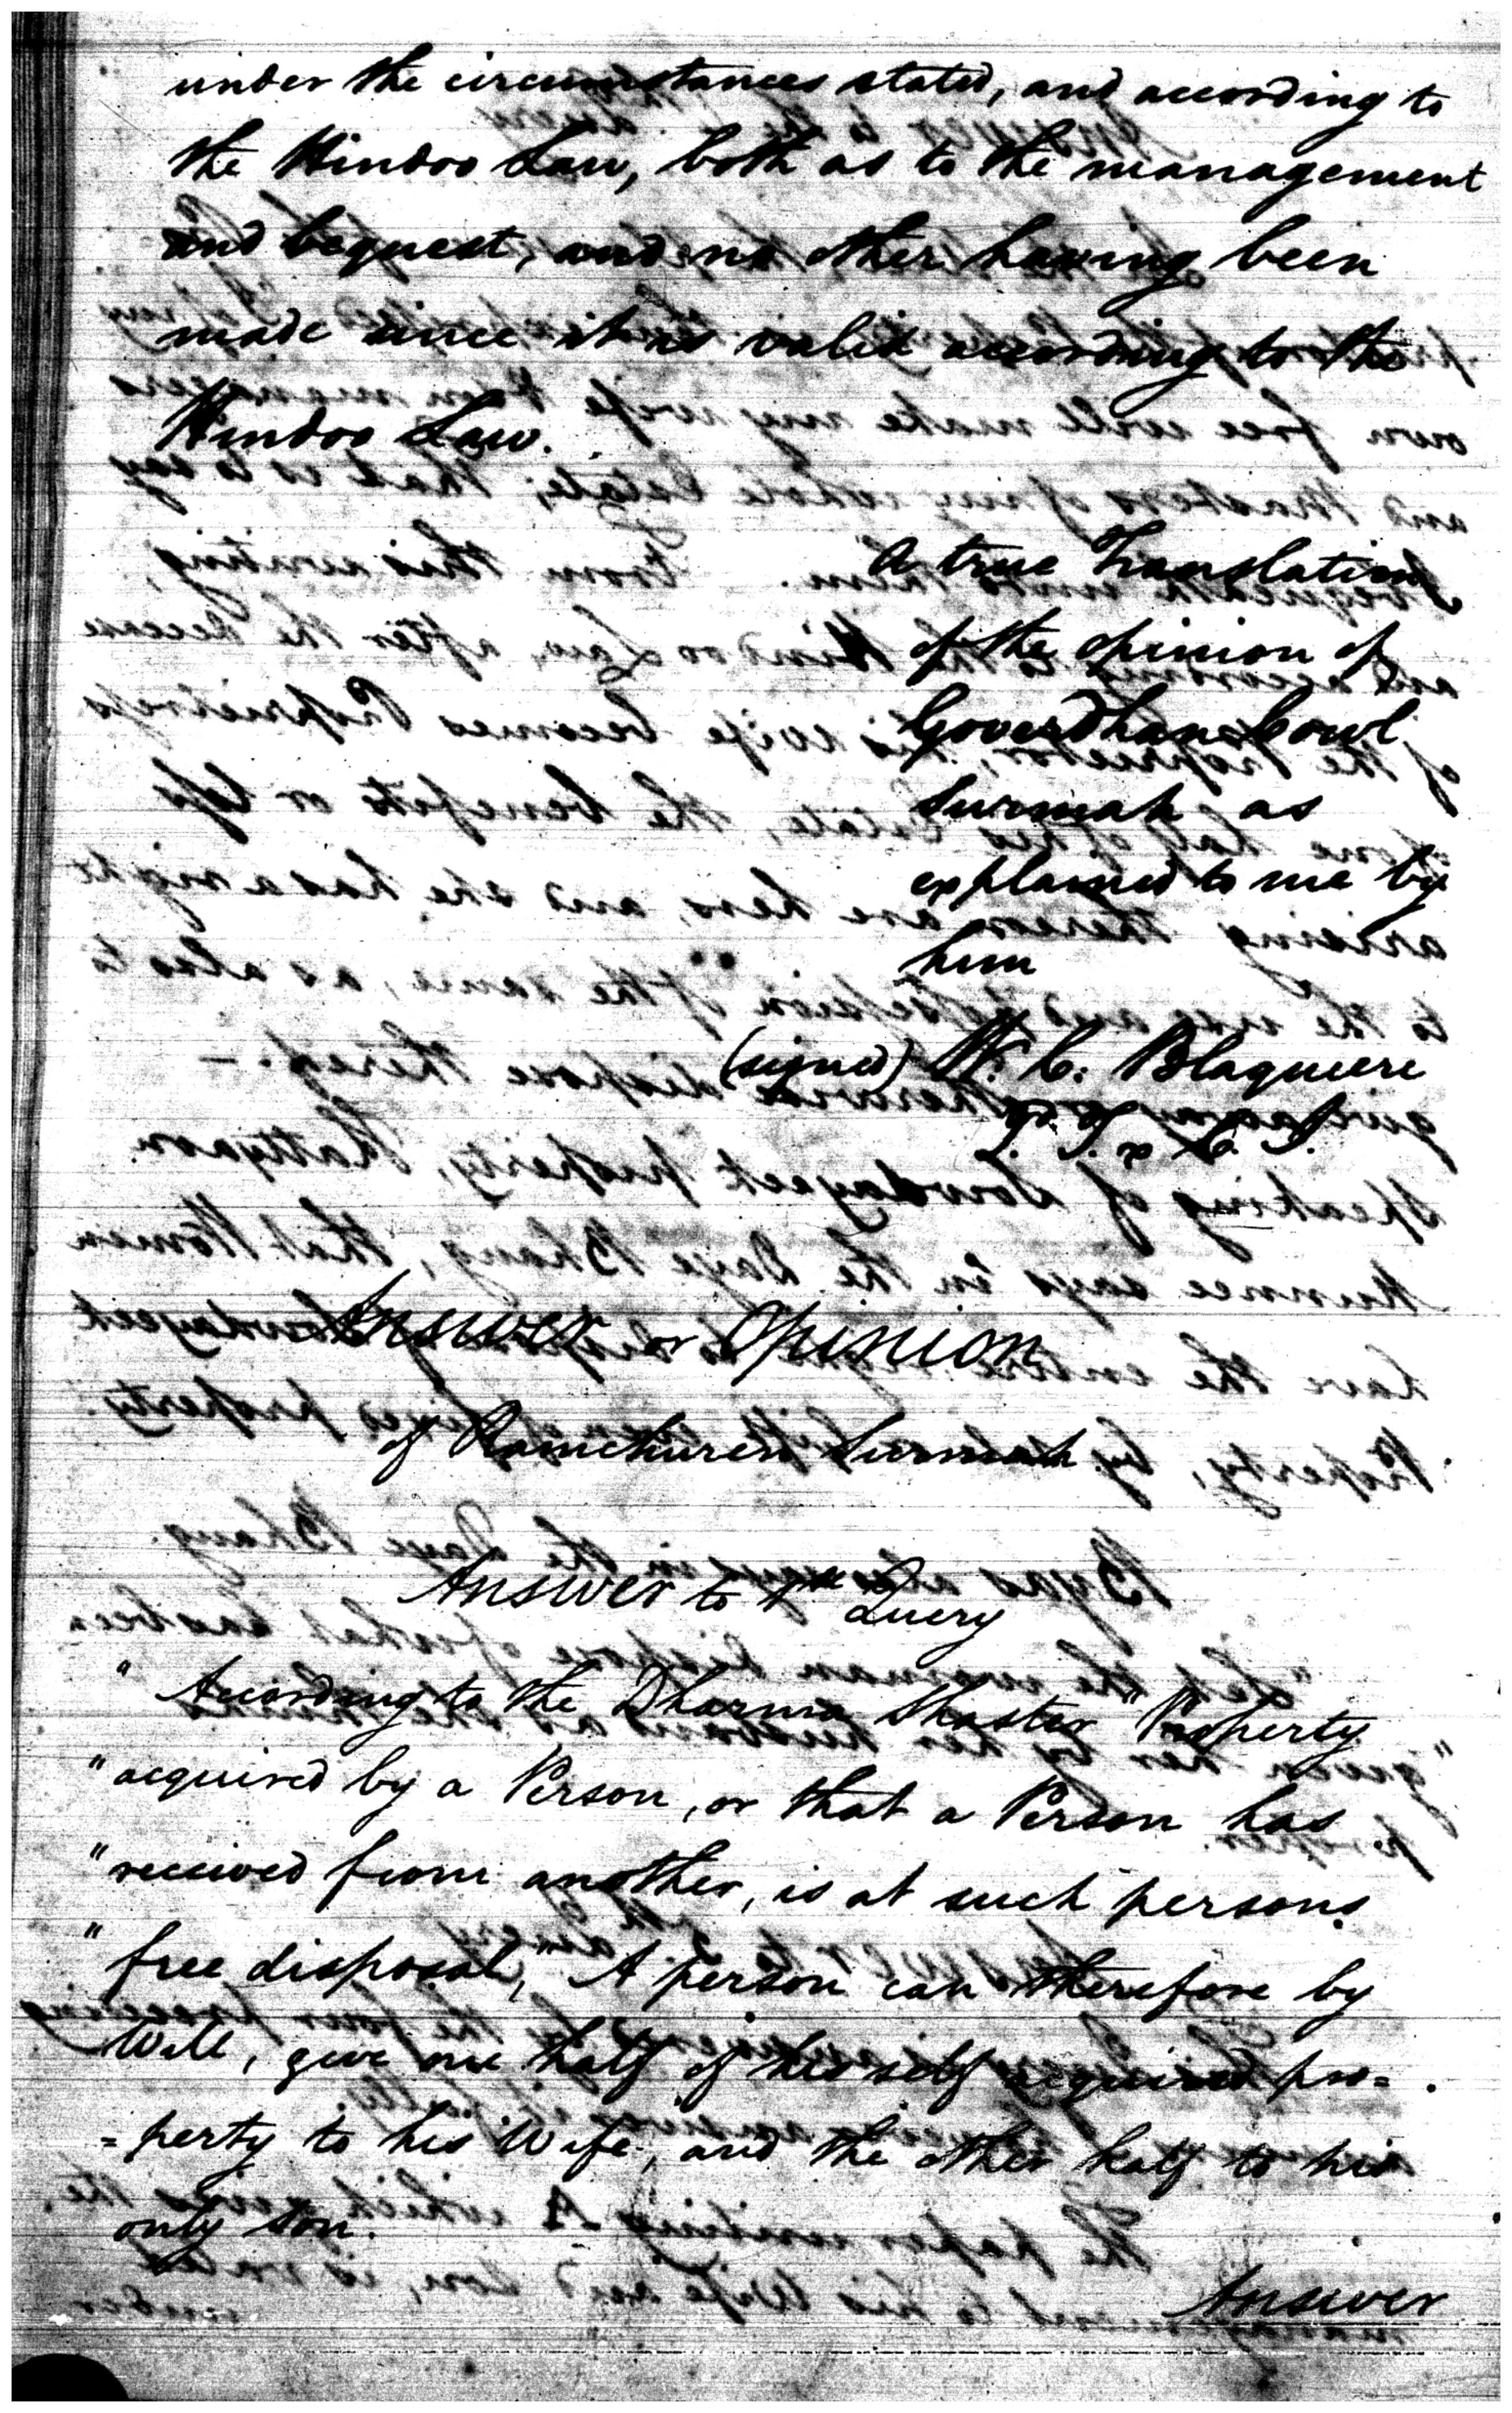 under the circumstances stated, and according to
the Hindoo Law, both as to the management
and bequest, and no other having been
made since it is valid according to the
Hindoo Law.
A true Translation
of the opinion of
Goverdhan Cowl
Surmah as
explained to me by
him
(signed) W. C. Blaquiere
Answer or Opinion
of Ramchuren Surmah.
Answer to 1st Query
" According to the Dharma Shaster "Property
" acquired by a Person, or that a Person has
" received from another, is at such persons
" free disposal," A person can therefore by
Will, give one half of his self acquired pro=
=perty to his Wife, and the other half to his
only son.
Answer